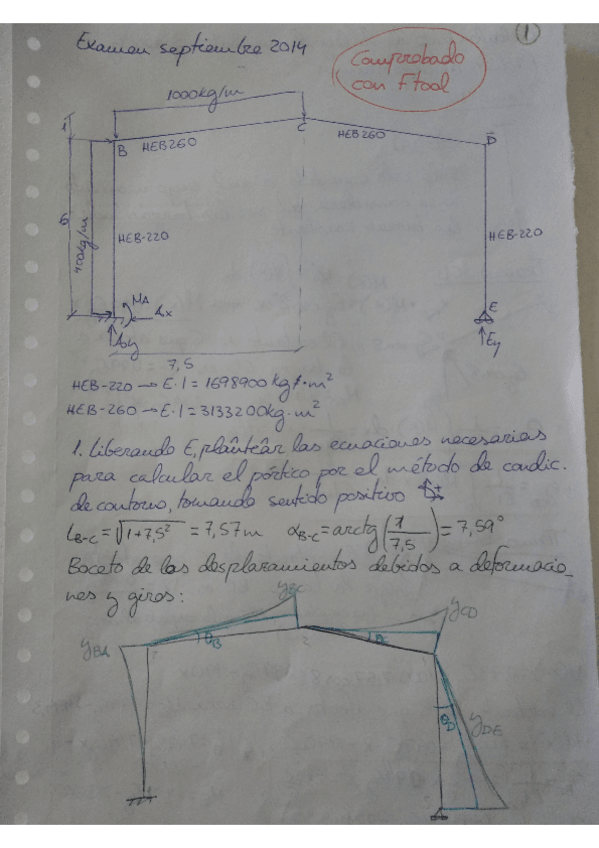 Examen septiembre 2014
1
Comprobado
con Ftool
1000kg/m
1
B
HEB260
C
HEB260
D
6
400kg/m
HEB-220
HEB-220
MA
Ax
E
Ay
Ey
7,5
HEB-220 → E·I = 1698900 kg·m²
HEB-260 → E·I = 3133200 kg·m²
1. Liberando E, plantear las ecuaciones necesarias
para calcular el pórtico por el método de condic.
de contorno, tomando sentido positivo
L_B-C = √(1+7,5²) = 7,57m α_B-C = arctg(1/7,5) = 7,59°
Boceto de los desplazamientos debidos a deformacio_
nes y giros:
yBC
yCD
yBA
θB
2
θC
θD
yDE